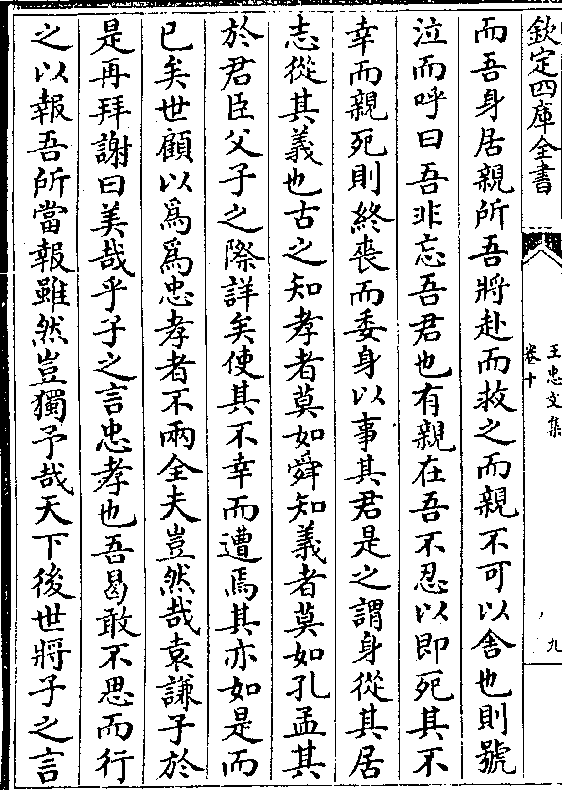 欽定四庫全書
王忠文集
卷十
九
而吾身居親所吾將赴而救之而親不可以舍也則號
泣而呼曰吾非忘吾君也有親在吾不忍以即死其不
幸而親死則終喪而委身以事其君是之謂身從其居
志從其義也古之知孝者莫如舜知義者莫如孔孟其
於君臣父子之際詳矣使其不幸而遭焉其亦如是而
已矣世顧以爲爲忠孝者不兩全夫豈然哉袁謙子於
是再拜謝曰美哉乎子之言忠孝也吾曷敢不思而行
之以報吾所當報雖然豈獨予哉天下後世將子之言